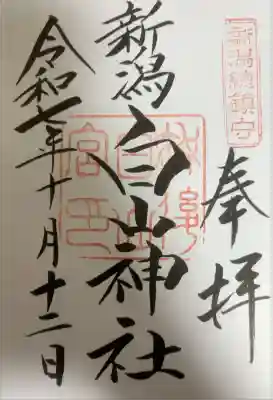 新潟總鎮守
奉拝
新潟白山神社
令和七年十月十二日